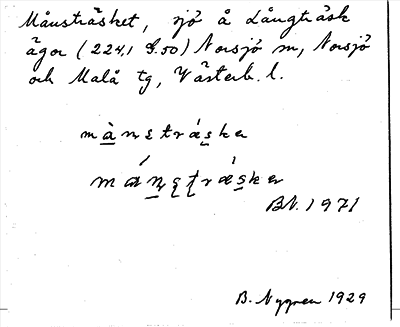 Månsträsket, sjö å Långträsk
ägor (224,1 S.50) Norsjö sn, Norsjö
och Malå tg, Västerb. l.
mànstráska
mánstráskan
BN. 1971
B. Nygren 1929